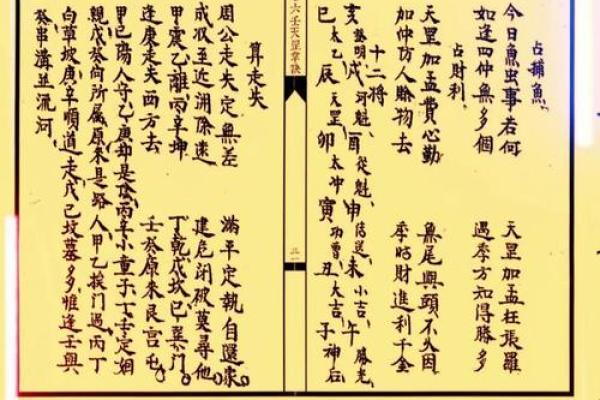 占捕魚
今日魚虫事若何 天罡加孟枉張羅
如逢四仲魚多個 遇季方知得勝多
占財利
天罡加孟費心勤 魚尾與頭不久因
加仲仿人賒物去 季時財進利千金
十二将
亥登明戌河魁酉從魁申傳送未小吉午勝光
巳太乙辰天罡卯太冲寅功曹丑大吉子神后
六壬天罡訣
算走失
周公走失定無差 滿平定執自還家
成收至近渊除遠 建危闭破莫尋他
甲震乙離丙辛坤 丁乾戊坎已巽门
逢庚走失西方去 壬癸原來艮宮屯
甲已陽人守乙庚却是陰丙辛小童子丁壬定姻
親戊癸何所属原來是路人甲乙挨门過丙丁
白草坡庚辛順道走戊已坟墓多惟逢壬與
癸串溝並流河